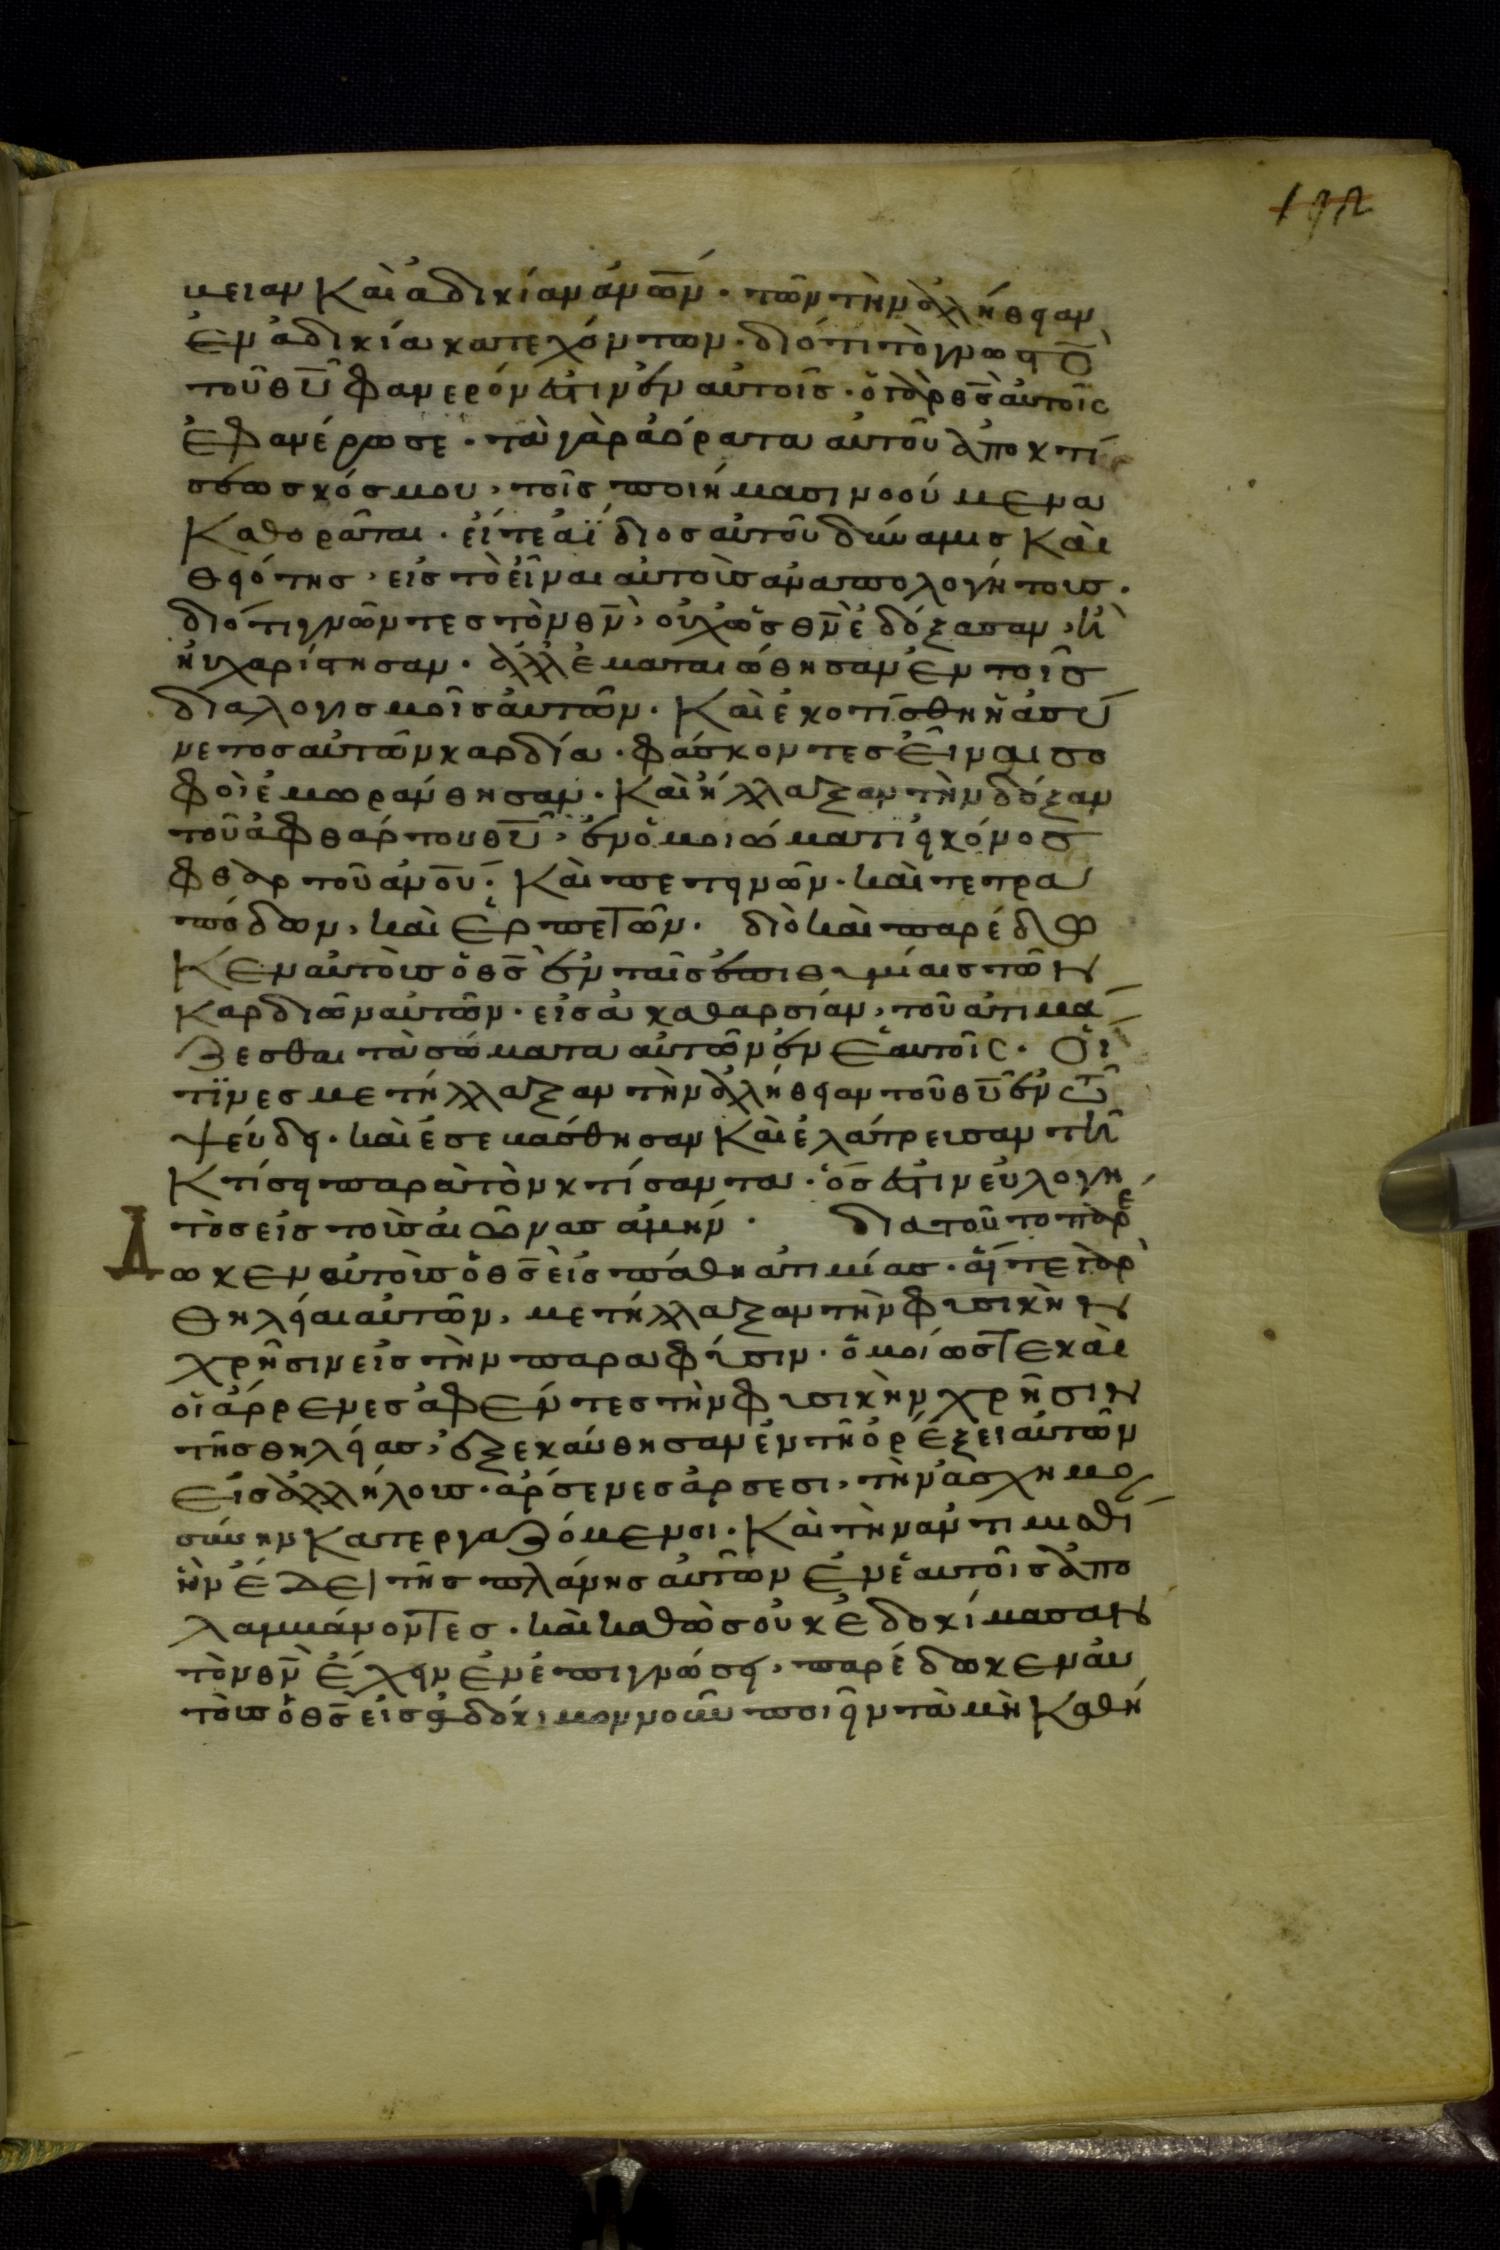 192
βειαν καὶ ἀδικίαν ἀν̅ων· τῶν τὴν ἀλήθειαν
ἐν ἀδικία κατεχόντων· διότι τὸ γνωστὸ̅
τοῦ θυ̅ φανερόν ἐστιν ἐν αὐτοῖς· ὁ γὰρ θς̅ αὐτοῖς
ἐφανέρωσε· τὰ γὰρ ἀόρατα αὐτοῦ ἀπὸ κτί
σεως κόσμου, τοῖς ποιήμασι νοούμενα
καθορᾶται· εἵ τε ἀΐδιος αὐτοῦ δύναμις καὶ
θειότης, εἰς τὸ εἶναι αὐτοὺς ἀναπολογήτους·
διότι γνῶντες τὸν θν̅, οὐχ ὡς θν̅ ἐδόξασαν, ἢ
ηὐχαρίστησαν· ἀλλ' ἐματαιώθησαν ἐν τοῖς
διαλογισμοῖς αὐτῶν· καὶ ἐκοτίσθη ἡ ἀσύ
νετος αὐτῶν καρδία· φάσκοντες εἶναι σο
φοὶ ἐμωράνθησαν· καὶ ἤλλαξαν τὴν δόξαν
τοῦ ἀφθάρτου θυ̅, ἐν ὁμοιώματι εἰκόνος
φθαρτοῦ ἀν̅ου· καὶ πετεινῶν· καὶ τετρα
πόδων, καὶ ἑρπετῶν· διὸ καὶ παρέδω
κεν αὐτοὺς ὁ θς̅ ἐν ταῖς ἐπιθυμίαις τῶν
καρδιῶν αὐτῶν· εἰς ἀκαθαρσίαν, τοῦ ἀτιμά
ζεσθαι τὰ σώματα αὐτῶν ἐν ἑαυτοῖς· Οἵ
τινες μετήλλαξαν τὴν ἀλήθειαν τοῦ θυ̅ ἐν τῶ
ψεύδει· καὶ ἐσεβάσθησαν καὶ ἐλάτρευσαν τῆ
κτίσει παρὰ τὸν κτίσαντα· ὅς ἐστιν εὐλογη
τὸς εἰς τοὺς αἰῶνας ἀμήν· διὰ τοῦτο παρέ
Δωκεν αὐτοὺς ὁ θς̅ εἰς πάθη ἀτιμίας· αἵ τε γὰρ
θηλείαι αὐτῶν, μετήλλαξαν τὴν φυσικὴν
χρῆσιν εἰς τὴν παρα φύσιν· ὁμοίως τε καὶ
οἱ ἄρρενες ἀφέντες τὴν φυσικὴν χρῆσιν
τῆς θηλείας, ἐξεκαύθησαν ἐν τῆ ὀρέξει αὐτῶν
εἰς ἀλλήλους· ἄρσενες ἄρσεσι, τὴν ἀσχημο
σύνην κατεργαζόμενοι· καὶ τὴν ἀντιμισθί
ἣν ἔδει τῆς πλάνης αὐτῶν ἐν ἑαυτοῖς ἀπο
λαμβάνοντες· καὶ καθὼς οὐκ ἐδοκίμασαν
τὸν θν̅ ἔχειν ἐν ἐπιγνώσει, παρέδωκεν αὐ
τοὺς ὁ θς̅ εἰς ἀδόκιμον νοῦν ποιεῖν τὰ μὴ καθή